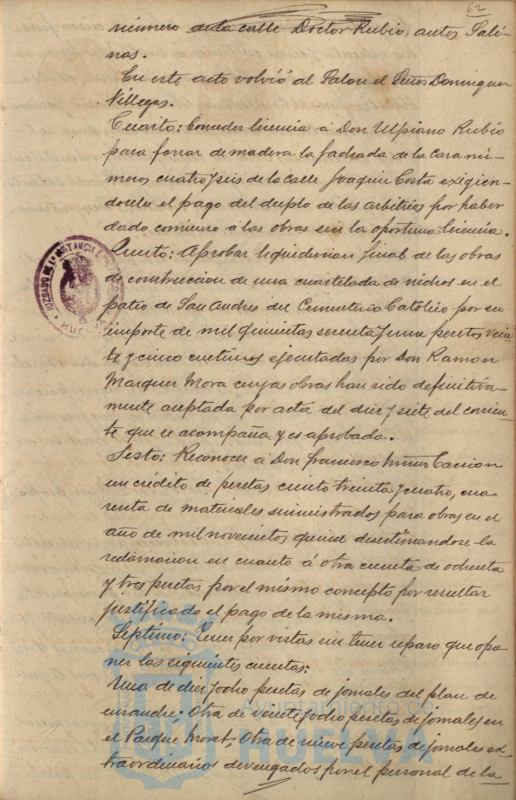 62
número de la calle Doctor Rubio, antes Sali-
nas.
En este acto volvió al Salon el Señor Dominguez
Villegas.
Cuarto: Conceder licencia á Don Ulpiano Rubio
para forrar de madera la fachada de la casa nú-
meros cuatro y seis de la calle Joaquin Costa exigien-
dosele el pago del duplo de los arbitrios por haber
dado comienzo á las obras sin la oportuna licencia.
Quinto: Aprobar liquidacion final de las obras
de construccion de una cuartelada de nichos en el
patio de San Andres del Cementerio Catolico por su
importe de mil quinientas sesenta y una pesetas vein-
te y cinco centimos ejecutadas por Don Ramon
Marquez Mora cuyas obras han sido definitiva-
mente aceptada por acta del diez y siete del corrien-
te que se acompaña y es aprobada.
Sesto: Reconocer á Don Francisco
un crédito de pesetas ciento treinta y cuatro, cua-
renta de materiales suministrados para obras en el
año de mil novecientos quince desestimandose la
reclamacion en cuanto á otra cuenta de ochenta
y tres pesetas por el mismo concepto por resultar
justificado el pago de la misma.
Septimo: Tener por vistas sin tener reparo que opo-
ner las siguientes cuentas:
Una de diez y ocho pesetas de jornales del plan de
ensanche. Otra de veinte y ocho pesetas de jornales en
el Parque Moret; Otra de nueve pesetas de jornales ex-
traordinarios devengados por el personal de la
JUZGADO DE 1ª INSTANCIA
HUELVA
Ayuntamiento de
HUELVA